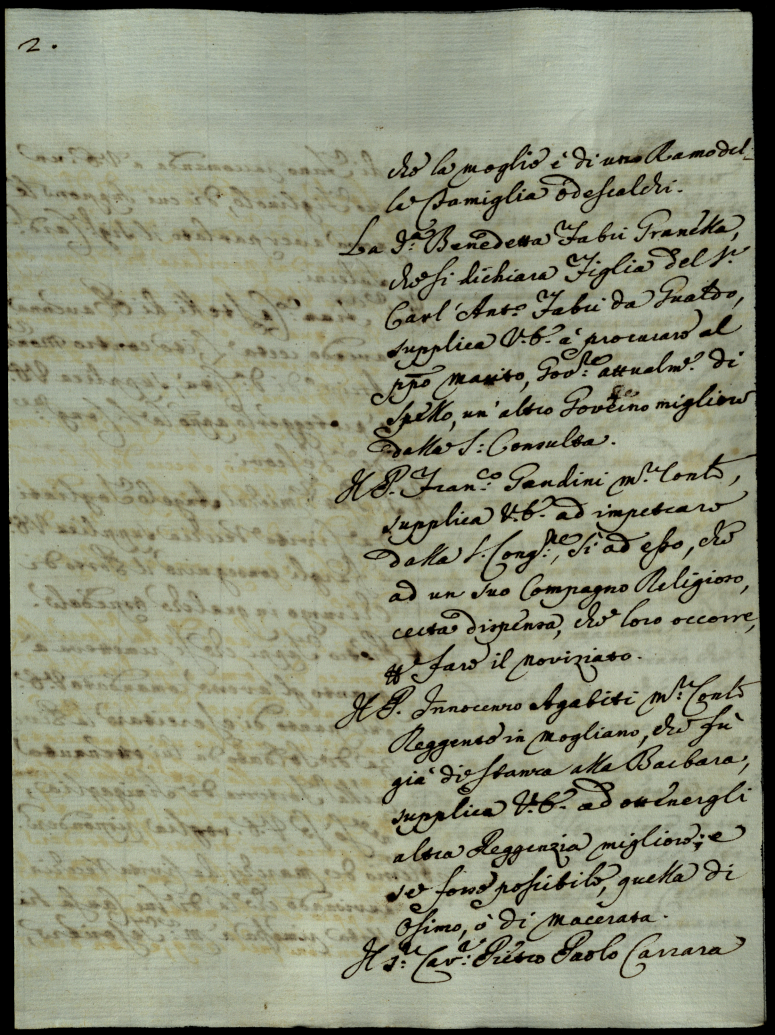 2.
che la moglie è di uno Ramo del-
la Famiglia Odescalchi.
La S.ra Benedetta Fabri Granella,
che si dichiara Figlia del S.r
Carl' Ant.o Fabri da Gualdo,
supplica V.E. à procurare al
ppõ marito, Gov.re attualm.e di
Spello, un' altro Governo migliore
dalla S: Consulta.
Il P. Fran.co Gandini M.r Conv.e,
supplica V.E. ad impetrare
dalla S. Cong.ne, sì ad esso, che
ad un suo Compagno Religioso,
certa dispensa, che loro occorre,
p fare il noviziato.
Il P. Innocenzo Agabiti M.r Conv.e
Reggente in Mogliano, che fù
già di stanza alla Barbara,
supplica V.E. ad ottenergli
altra Reggenzia migliore; e
se fosse possibile, quella di
Osimo, ò di Macerata.
Il S.r Cav.r Pietro Paolo Carrara